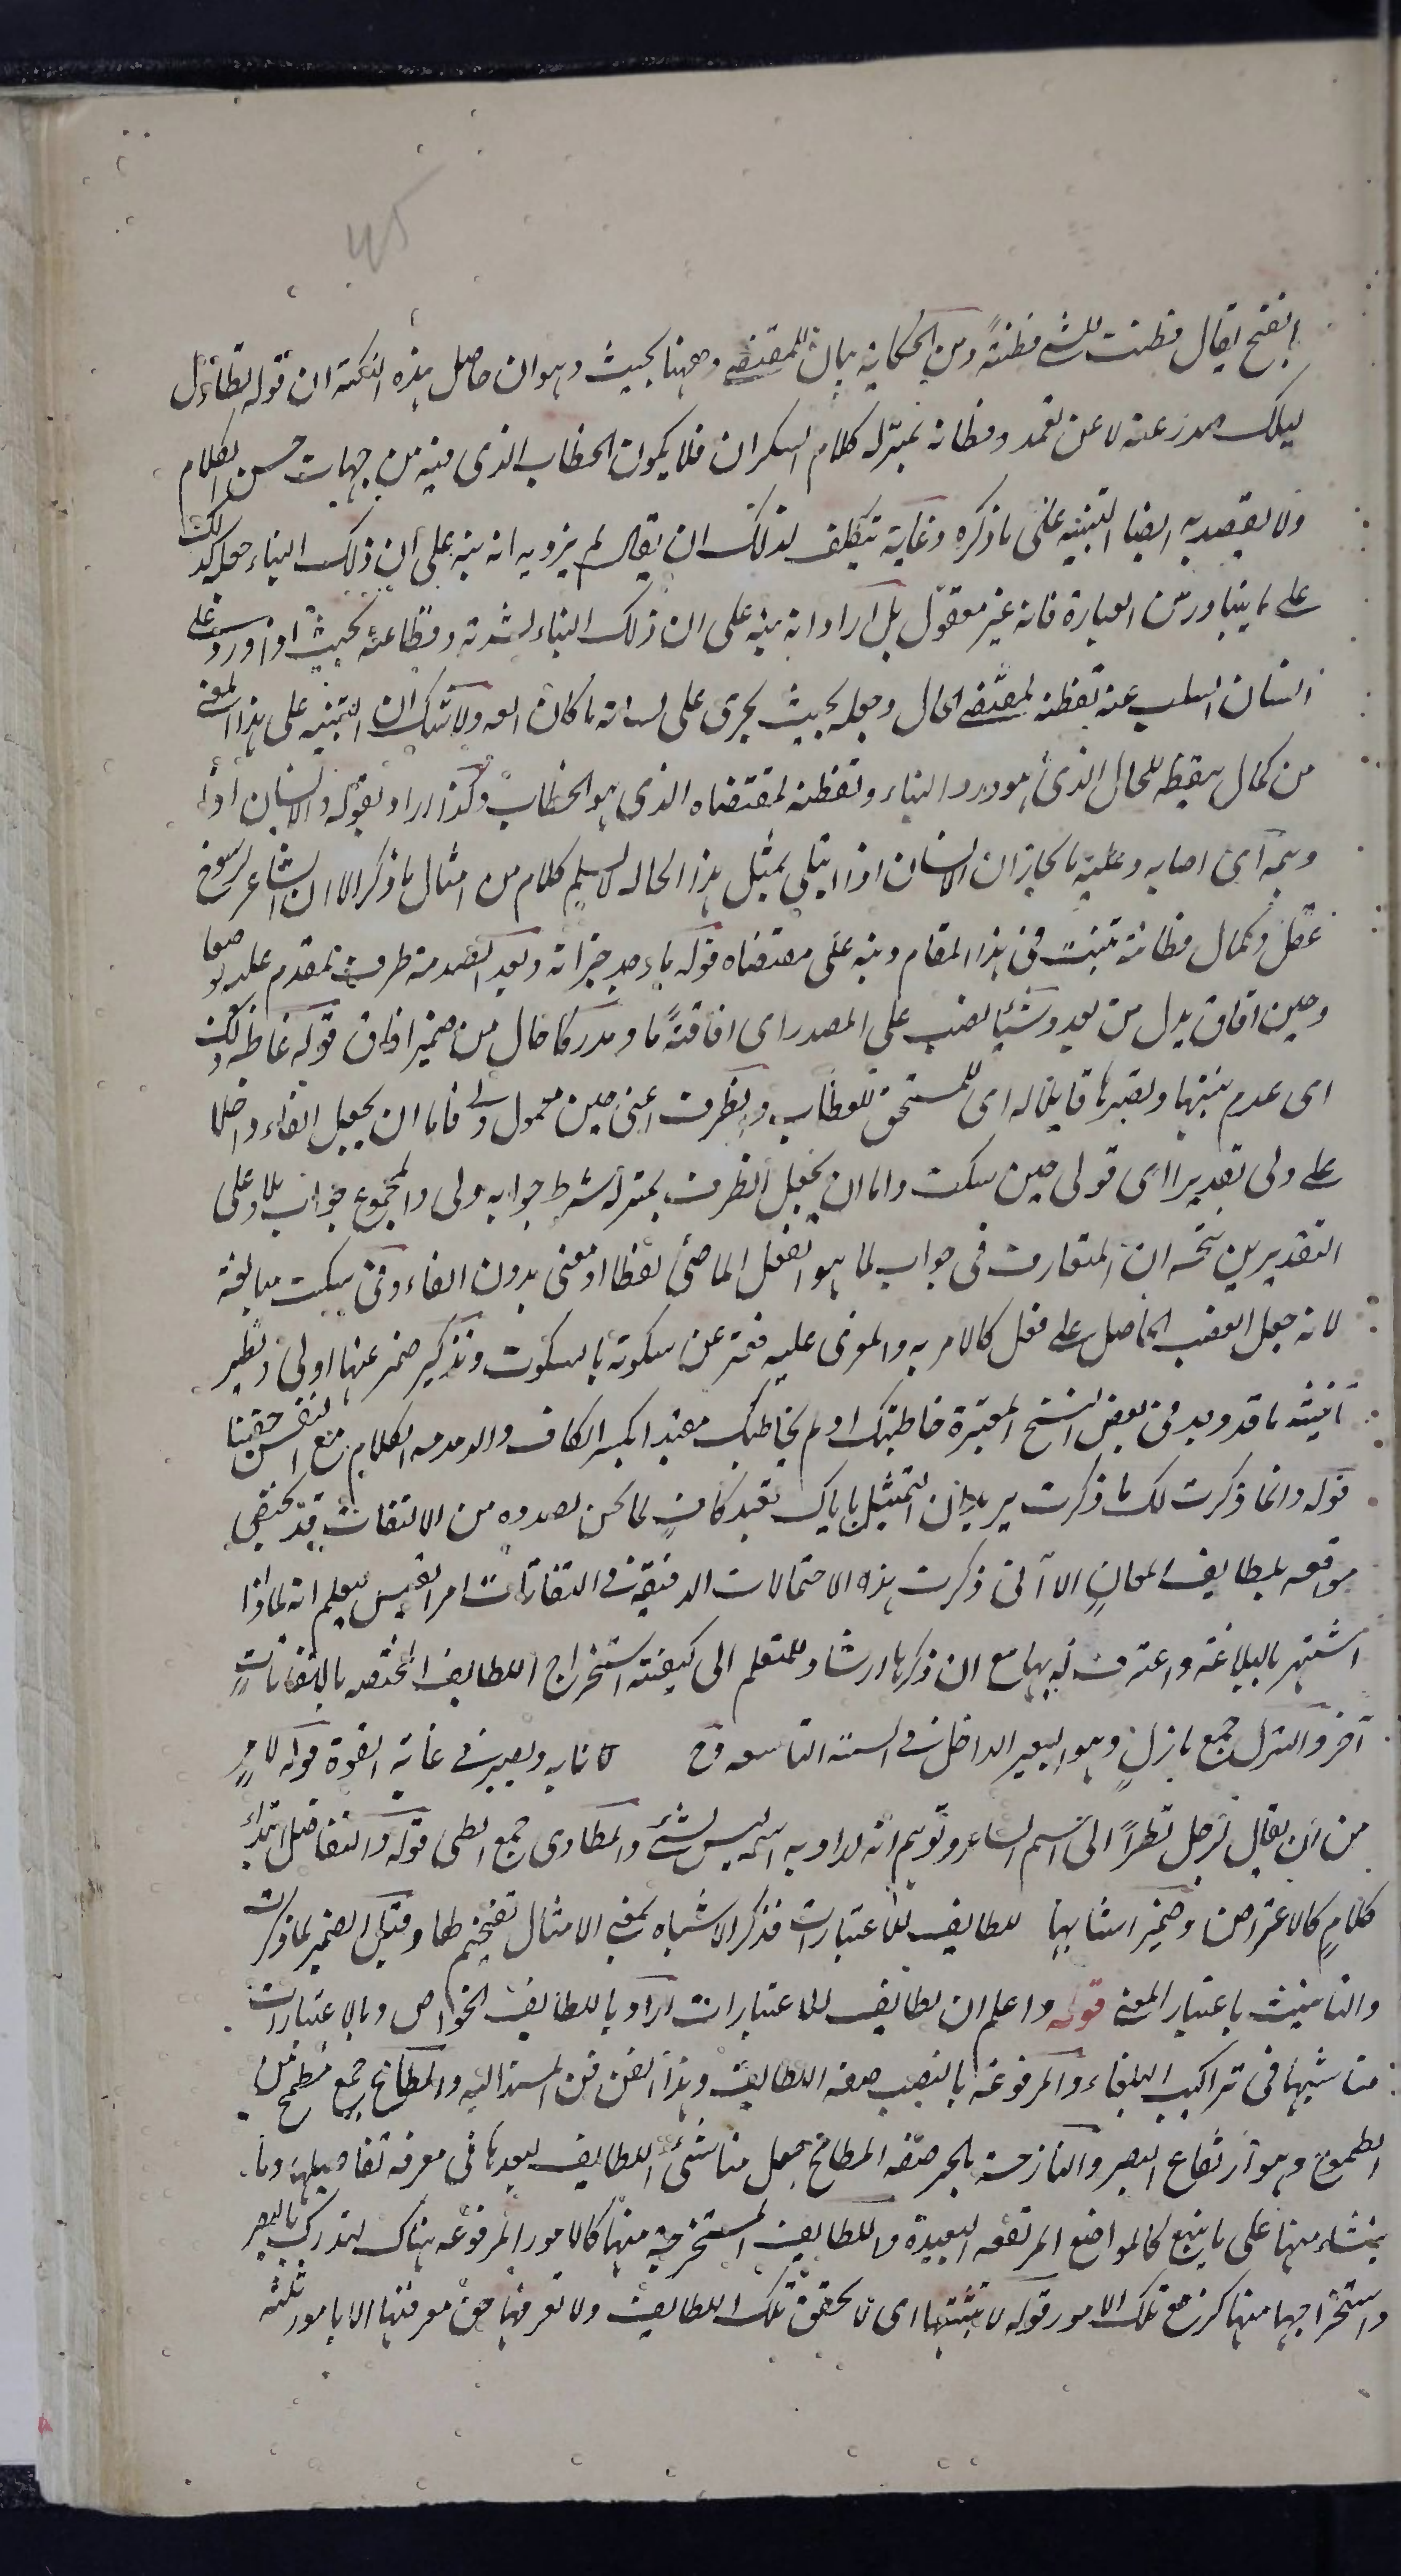 بالفتح يقال فطنت للشئ فطنةً ومن الحكاية بيان للمقتضى وههنا بحيث وهوان حاصل هذه النكتة ان قوله تطاول
ليلك صدر عنه لا عن تعمد وفطانة بمنزلة كلام السكران فلا يكون الخطاب الذى فيه من جهات حسن الكلام
ولا يقصد به ايضا التنبيه على ما ذكره وغاية تكلف لذلك ان يقال لم يرد به انه نبه على ان ذلك النباء جعله كذلك
على ما يتبادر من العبارة فانه غير معقول بل اراد انه نبه على ان ذلك النباء لشدته وفظاعته بحيث اذا ورد على
انسان السلب عنه تفطنه لمقتضى الحال وجعله بحيث يجرى على لسانه ما كان الفه ولا شك ان التنبيه على هذا المعنى
من كمال تيقظه للحال الذى هو ورود النباء وتفطنه لمقتضاه الذى هو الخطاب وكذا اراد بقوله والانسان اذا
دهمه اى اصابه وغلبه ما يحار ان الانسان اذا ابتلى بمثل هذا الحاله لا يسلم كلام من امثال ما ذكر الا ان الشاعر لرسوخ
عقل وكمال فطانة تثبت فى هذا المقام ونبه على مقتضاه قوله باء وجد خبر انه وبعد الصدمة ظرف تقدم عليه
وحين افاق بدل من بعد وشيئا نصب على المصدر اى افاقةً ما ومدركا حال من ضمير افاق قوله غاظه ذلك
اى عدم تثبتها وتصبرها قايلا له اى للمستحق للعطاب والظرف اعنى حين معمول ولى فاما ان يجعل الفاء داخلا
على ولى تقديرا اى قولى حين سكت واما ان يجعل الظرف بمنزلة شرط جوابه ولى والمجموع جواب لما وعلى
التقديرين يتجه ان المتعارف فى جواب لما هو الفعل الماضى لفظا او معنى بدون الفاء وفى سكت مبالغة
لانه جعل الغضب الحاصل على فعل كالامر به والموذى عليه فعبر عن سكوته بالسكوت وتذكير ضمير عنها اولى ونظير
تأنيثه ما قد وجد فى بعض النسخ المعتبرة خاطبتك او لم يخاطبك مقيدا بكسر الكاف والدمدمة الكلام مع النفس حقيقيا
قوله وانما ذكرت لك ما ذكرت يريد ان التمثيل باياك نعبد كاف لما نحن بصدده من الالتفات قد يختص
مواقعه بلطايف المعان الا انى ذكرت هذه الاحتمالات الدقيقة فى التفاتات امرئ القيس ليعلم انه لماذا
اشتهر بالبلاغة واعترف له بها مع ان ذكرها ارشاد للمتعلم الى كيفيته استخراج اللطايف المختصه بالتفاتات
آخر والبزل جمع بازل وهو البعير الداخل فى السنة التاسعة نابه ويصير فى غاية القوة قوله لامرٍ
من ان يقال ترحل نظراً الى اسم الشاعر وتوهم انه اراد به اسمه ليس بشئ والمطاوى جمع الطى قوله والتفاضل ابتداء
كلامٍ كالاعتراض وضمير اشباهها للطايف للاعتبارات فذكر الاشباه بمعنى الامثال تفخيم لها وقيل الضمير لما ذكرت
والتانيث باعتبار المعنى قوله واعلم ان لطايف الاعتبارات اراد باللطايف الخواص وبالاعتبارات
مناشيها فى تراكيب البلغاء والمرفوعة بالنصب صفة اللطايف وهذا الفن فن المسند اليه والمطامح جمع مطمح من
الطموح وهو ارتفاع البصر والنازحة بالجر صفة المطامح جعل مناشئ اللطايف لبعدها فى معرفة تفاصيلها وما
ينشاء منها على ما ينبغى كالمواضع المرتفعه البعيدة واللطايف المستخرجة منها كالامور المرفوعه هناك لتدرك بالبصر
واستخراجها منها كرفع تلك الامور قوله لا تثبتها اى لا تحقق تلك اللطايف ولا تعرفها حق معرفتها الا بامور ثلثه